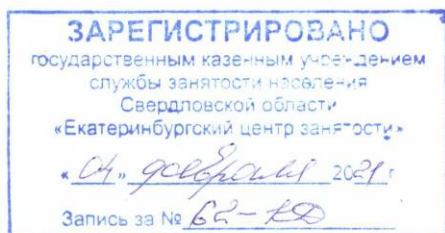 ЗАРЕГИСТРИРОВАНО
государственным казенным учреждением
службы занятости населения
Свердловской области
«Екатеринбургский центр занятости»
«04» февраля 2021 г
Запись за № 62-КД